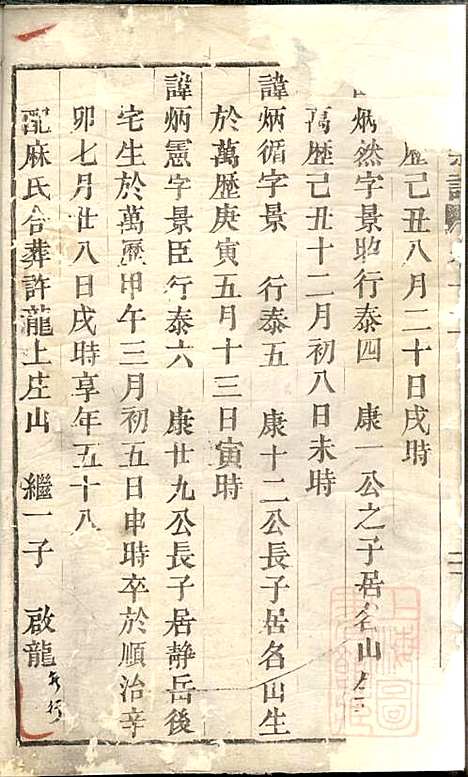 歷己丑八月二十日戌時
炳然字景 行泰四 康一公之子居名山生
萬歷己丑十二月初八日未時
諱炳循字景 行泰五 康十二公長子居名山生
於萬歷庚寅五月十三日寅時
諱炳憲字景臣行泰六 康廿九公長子居靜岳後
宅生於萬歷甲午三月初五日申時卒於順治辛
卯七月廿八日戌時享年五十八
配麻氏合葬許龍上庄山 繼一子 啟龍